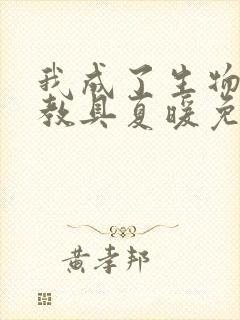 我成了生物
教具夏暖免
黄孝邦